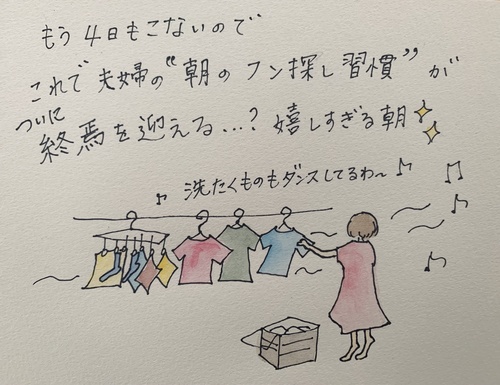 もう4日もこないので
これで夫婦の"朝のフン探し習慣"が
ついに
終焉を迎える…?嬉しすぎる朝
洗たくものもダンスしてるわ〜